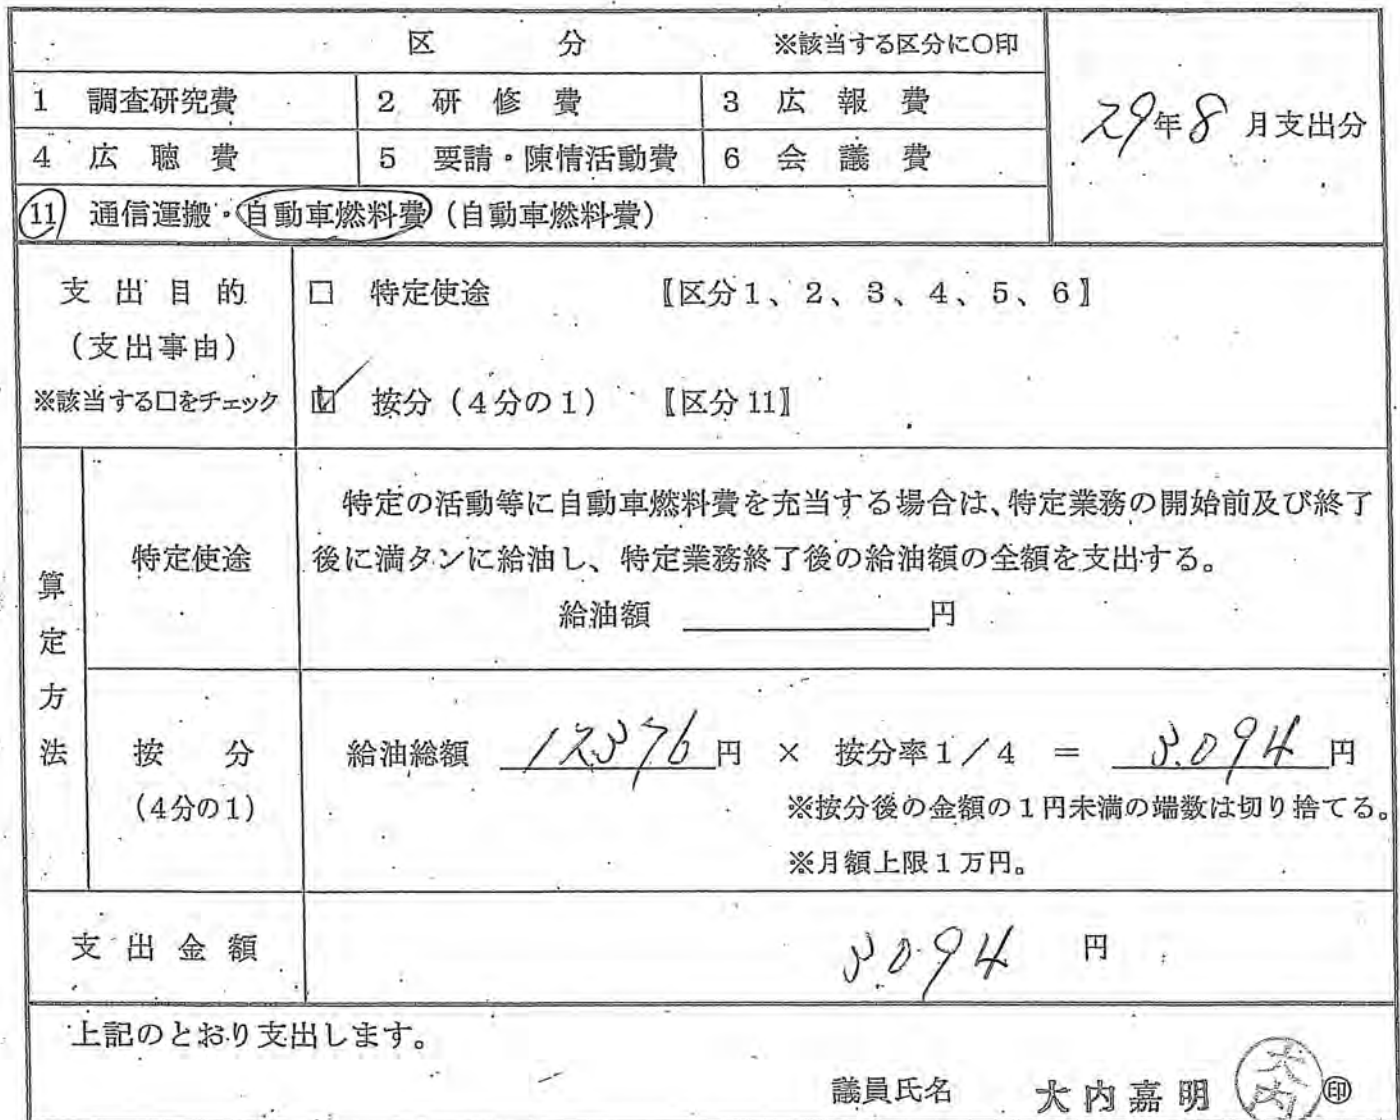 区 分 ※該当する区分に○印
29年8月支出分
1 調査研究費 2 研修費 3 広報費
4 広聴費 5 要請・陳情活動費 6 会議費
11 通信運搬・自動車燃料費(自動車燃料費)
支出目的
(支出事由)
※該当する口をチェック
□ 特定使途 〖区分1、2、3、4、5、6〗
☑ 按分(4分の1) 〖区分11〗
算定方法
特定使途
特定の活動等に自動車燃料費を充当する場合は、特定業務の開始前及び終了
後に満タンに給油し、特定業務終了後の給油額の全額を支出する。
給油額 円
按分
(4分の1)
給油総額 12376円 × 按分率1/4 = 3.094円
※按分後の金額の1円未満の端数は切り捨てる。
※月額上限1万円。
支出金額 3.094 円
上記のとおり支出します。
議員氏名 大内嘉明 大内 印